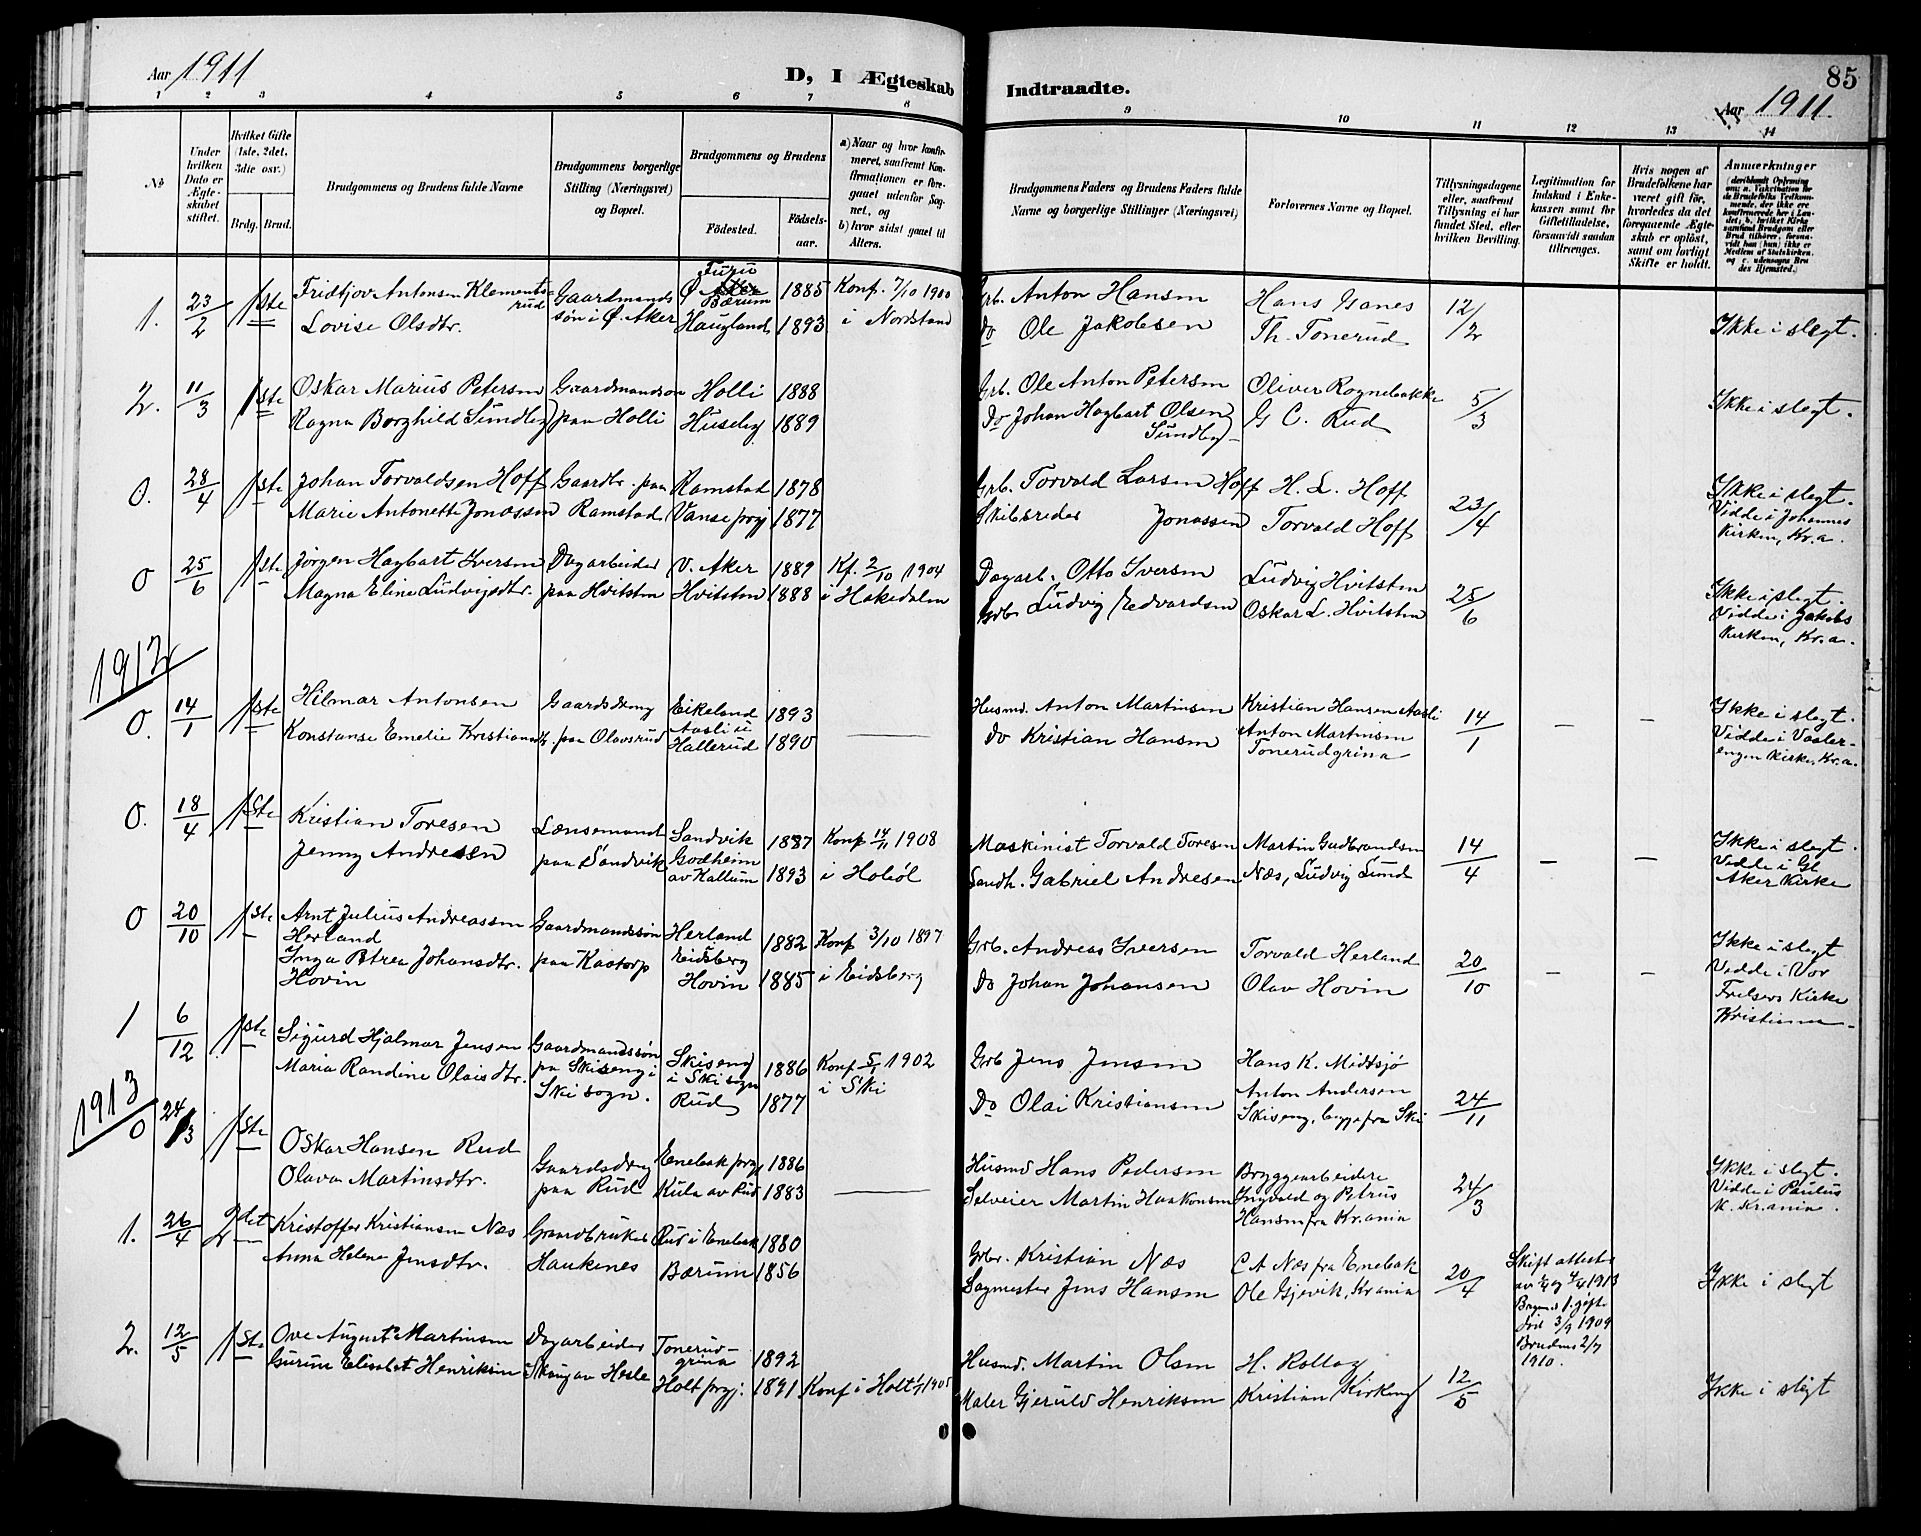 Aar 1911
D, I Ægteskab
Indtraadte.
85
Aar 1911.
1 2 3 4 5 6 7 8 9 10 11 12 13 14
No
Under
hvilken
Dato er
Ægte-
skabet
stiftet.
Hvilket Gifte
(1ste, 2det,
3die osv.)
Brdg. Brud.
Brudgommens og Brudens fulde Navne
Brudgommens borgerlige
Stilling (Næringsvei)
og Bopæl.
Brudgommens og Brudens
Fødested.
Fødsels-
aar.
a) Naar og hvor konfir-
meret, saafremt Kon-
firmationen er fore-
gaaet udenfor Sog-
net, og
b) hvor sidst gaaet til
Alters.
Brudgommens Faders og Brudens Faders fulde
Navne og borgerlige Stillinger (Næringsvei)
Forlovernes Navne og Bopæl.
Tillysningsdagene
eller, saafremt
Tillysning ei har
fundet Sted, efter
hvilken Bevilling.
Legitimation for
Indskud i Enke-
kassen samt for
Giftetilladelse,
forsaavidt saadan
tiltrænges.
Hvis nogen af
Brudefolkene har
været gift før,
hvorledes da det
foregaaende Ægte-
skab er opløst,
samt om lovligt
Skifte er holdt.
Anmærkninger
1. 23/2 1ste Fridtjov Antonsen Klements- Gaardmands Ø. Furu 1885 Konf. 7/10 1900 Grb. Anton Hansen Hans Isanes 12/2
rud søn i Ø. Aker Bærum i Nordstand
Lovise Olsdtr. Haugland 1893 Do Ole Jakobsen Th. Tonerud Ikke i slegt.
2. 11/3 1ste Oskar Marius Petersen Gaardmandsøn Holli 1888 Grb. Ole Anton Petersen Oliver Rognebakke 5/3 Ikke i slegt.
Ragna Borghild Sundby paa Holli Huseby 1889 Do Johan Hagbart Olsen G C. Rud
Sundby
0. 28/4 1ste Johan Torvaldsen Hoff Gaardbr. paa Ramstad 1878 Grb. Torvald Larsen Hoff H. L. Hoff 23/4 Ikke i slegt.
Marie Antonette Jonassen Ramstad Vanse prgj 1877 Skibsreder Jonassen Torvald Hoff Vidde i Johannes
Kirken, Kr.a.
0 25/6 1ste Jørgen Hagbart Iversen Dagarbeider V. Aker 1889 Kf. 2/10 1904 Dagarb. Otto Iversen Ludvig Hvitsten 25/6 Ikke i slegt.
Magna Eline Ludvigsdtr. paa Hvitsten Hvitsten 1888 i Hakedalen Grb. Ludvig Edvardsen Oskar L. Hvitsten Vidde i Jakobs
Kirken, Kr.a.
1912
0. 14/1 1ste Hilmar Antonsen Gaardsdreng Eikeland 1893 Husmd. Anton Martinsen Kristian Hansen Aasli 14/1 – – Ikke i slegt.
Konstanse Emelie Kristiansdt. paa Olavsrud Aasli u Hallerud 1890 — Do Kristian Hansen Anton Martinsen Vidde i Vaaler-
Tonerudgrina engen Kirke, Kr.a.
0. 18/4 1ste Kristian Toresen Lænsemand Sandvik 1887 Konf 14/11 1908 Maskinist Torvald Toresen Martin Gudbrandsen 14/4 – – Ikke i slegt.
Jenny Andresen paa Sandvik Godheim av Kallum 1893 i Hobøl Landh. Gabriel Andresen Næs, Ludvig Lund Vidde i Gl.
Aker Kirke
0 20/10 1ste Arnt Julius Andreassen Gaardmandssøn Herland 1882 Konf 3/10 1897 Grb. Andreas Iversen Torvald Herland 20/10 – – Ikke i slegt
Herland Eidsberg Vidde i Vor
Inga Petrea Johansdtr. paa Kastorp Hovin 1885 i Eidsberg Do Johan Johansen Olav Hovin Frelsers Kirke
Hovin Kristiania
1 6/12 1ste Sigurd Hjalmar Jensen Gaardmandssøn Skiseng 1886 Konf 5/1 1902 Grb Jens Jensen Hans K. Midtsjø 24/11
Maria Randine Olaisdtr. pa Skiseng i i Ski sogn i Ski Anton Andersen
Ski sogn. Rud 1877 Do Olai Kristiansen Skiseng, begge fra Ski
1913
0 24/3 1ste Oskar Hansen Rud Gaardsdreng Enebak prgj 1886 Husmd Hans Pedersen Bryggearbeidere 24/3 Ikke i slegt.
Olava Martinsdtr. paa Rud Kula av Rud 1883 — Selveier Martin Haakonsen Ingvald og Petrus Vidde i Paulus
Hansen fra Kr.ania K. Kr.ania.
1. 26/4 2det Kristoffer Kristiansen Næs Gaardbruker Rud i Enebak 1880 Grbr. Kristian Næs C A Næs fra Enebak 20/4 Skift attester Ikke i slegt
Anna Helene Jensdtr. Haukenes Bærum 1856 Sagmester Jens Hansen Ole Gjevik, Kr.ania 1913
1. gifte
død 3/9 1909
Brudens 2/7
1910.
2. 12/5 1ste Ove August Martinsen Dagarbeider Tonerud-grina 1892 Husmd. Martin Olsen H. Kollag 12/5
Gurine Elisabet Henriksen Skaug av Hesle Holt prgj. 1891 Konf i Holt 1905 Maler Gjeruld Henriksen Kristian Kirkeng Ikke i slegt